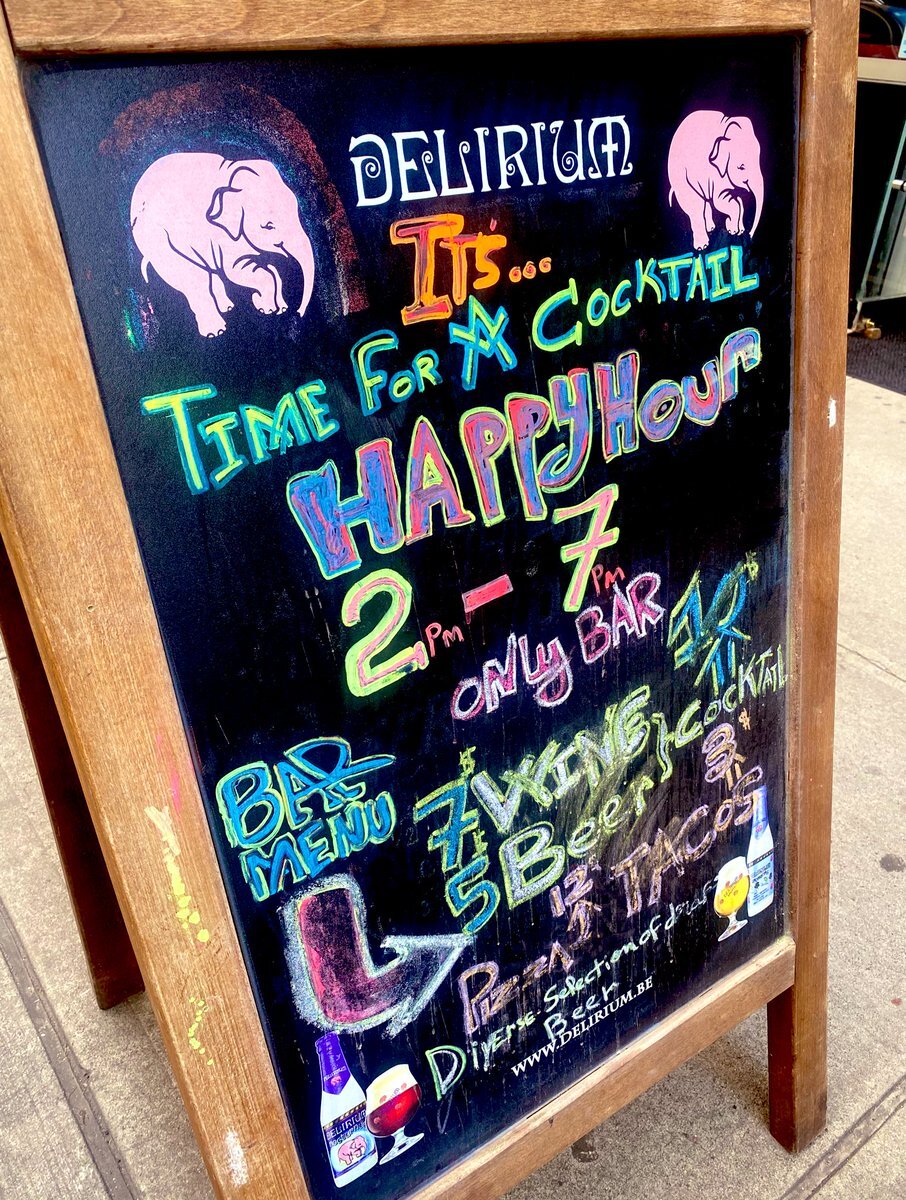 DELIRIUM
IT's...
TIME FOR A COCKTAIL
HAPPY HOUR
2PM - 7PM
ONLY BAR
10$
COCKTAIL
BAR
MENU
7$ WINE
5$ Beer
3$
TACOS
12$
PIZZA
Diverse Selection of draft
Beer
WWW.DELIRIUM.BE
DELIRIUM